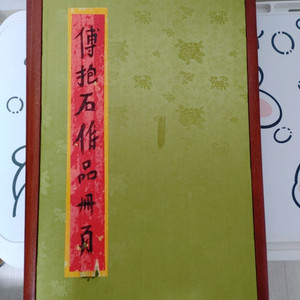 傅抱石作品册頁